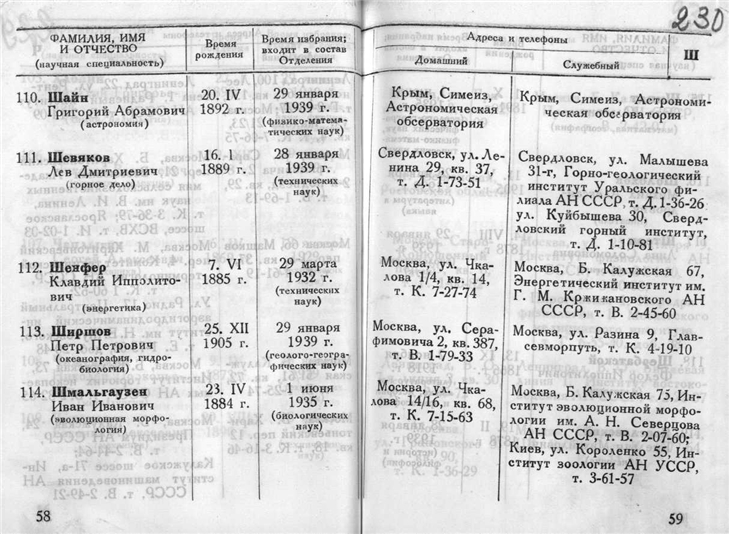 230
ФАМИЛИЯ, ИМЯ
И ОТЧЕСТВО
(научная специальность)
Время
рождения
Время избрания;
входит в состав
Отделения
110. Шайн
Григорий Абрамович
(астрономия)
20. IV
1892 г.
29 января
1939 г.
(физико-матема-
тических наук)
111. Шевяков
Лев Дмитриевич
(горное дело)
16. I
1889 г.
28 января
1939 г.
(технических
наук)
112. Шенфер
Клавдий Ипполито-
вич
(энергетика)
7. VI
1885 г.
29 марта
1932 г.
(технических
наук)
113. Ширшов
Петр Петрович
(океанография, гидро-
биология)
25. XII
1905 г.
29 января
1939 г.
(геолого-геогра-
фических наук)
114. Шмальгаузен
Иван Иванович
(эволюционная морфо-
логия)
23. IV
1884 г.
1 июня
1935 г.
(биологических
наук)
58
Адреса и телефоны
Домашний
Служебный
Ш
Крым, Симеиз,
Астрономическая
обсерватория
Крым, Симеиз, Астрономи-
ческая обсерватория
Свердловск, ул. Ле-
нина 29, кв. 37,
т. Д. 1-73-51
Свердловск, ул. Малышева
31-г, Горно-геологический
институт Уральского фи-
лиала АН СССР, т. Д. 1-36-26
ул. Куйбышева 30, Сверд-
ловский горный институт,
т. Д. 1-10-81
Москва, ул. Чка-
лова 1/4, кв. 14,
т. К. 7-27-74
Москва, Б. Калужская 67,
Энергетический институт им.
Г. М. Кржижановского АН
СССР, т. В. 2-45-60
Москва, ул. Сера-
фимовича 2, кв. 387,
т. В. 1-79-33
Москва, ул. Разина 9, Глав-
севморпуть, т. К. 4-19-10
Москва, ул. Чка-
лова 14/16, кв. 68,
т. К. 7-15-63
Москва, Б. Калужская 75, Ин-
ститут эволюционной морфо-
логии им. А. Н. Северцова
АН СССР, т. В. 2-07-60;
Киев, ул. Короленко 55, Ин-
ститут зоологии АН УССР,
т. 3-61-57
59